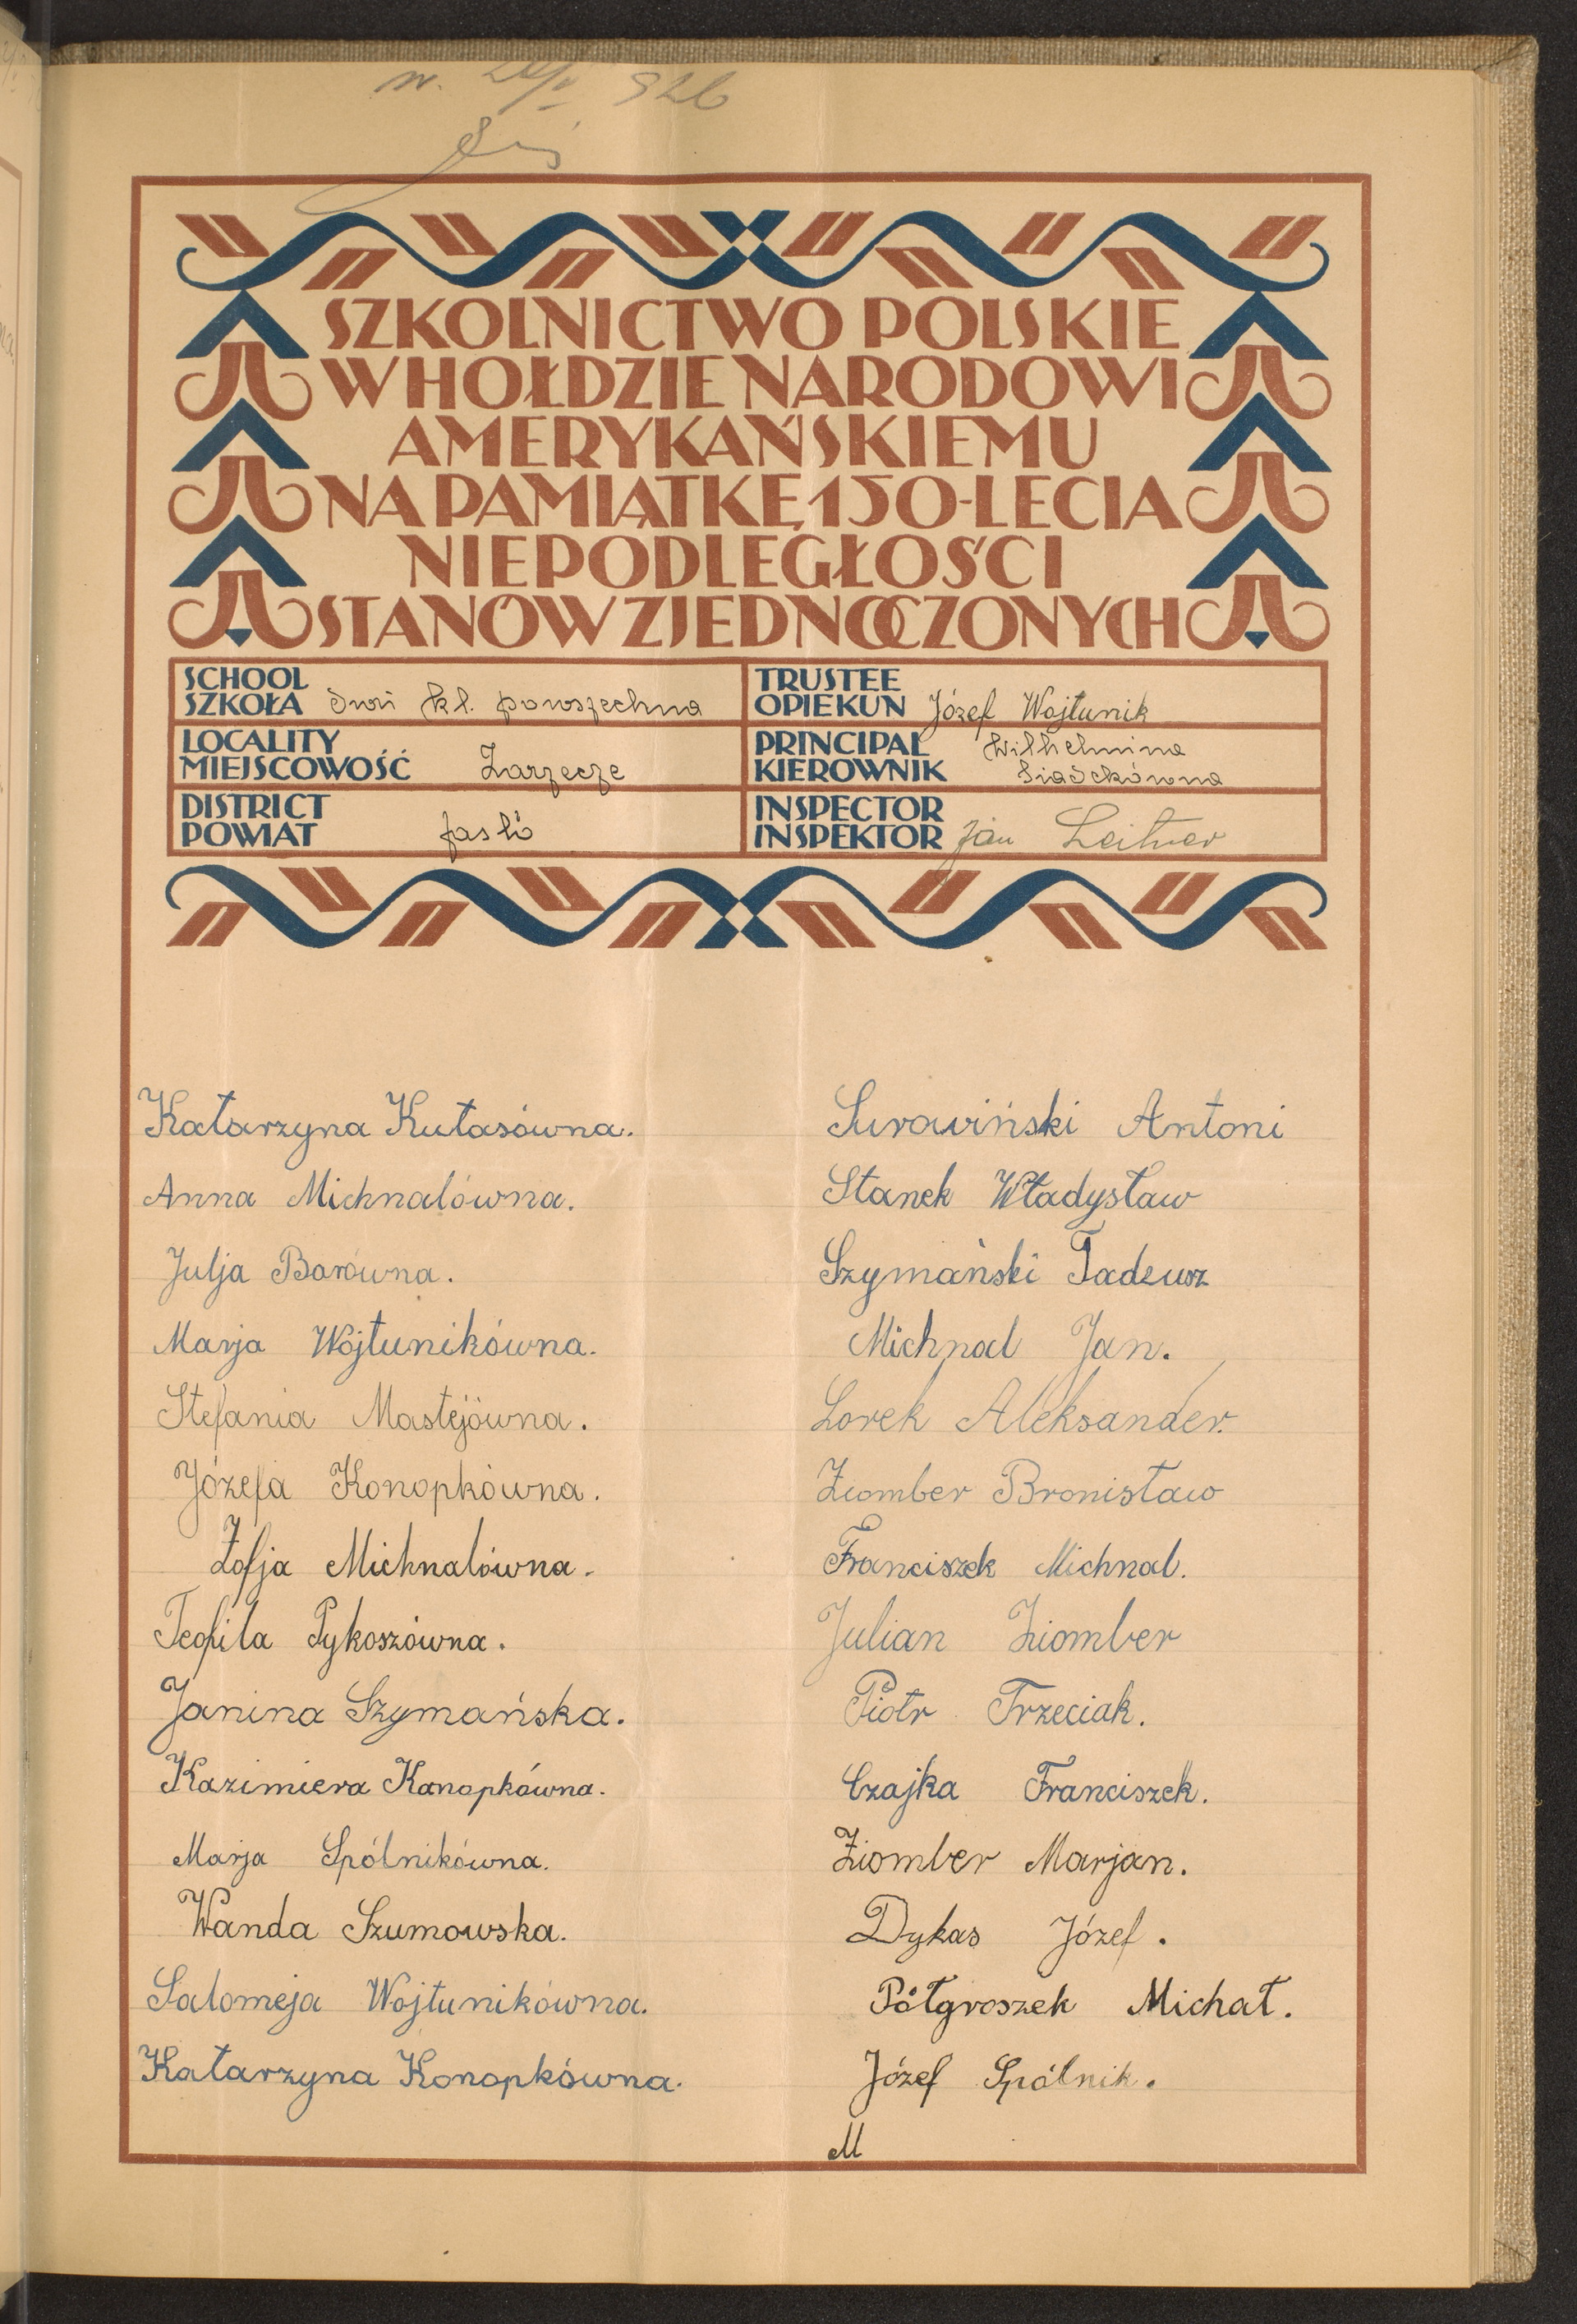 SZKOLNICTWO POLSKIE
W HOŁDZIE NARODOWI
AMERYKAŃSKIEMU
NA PAMIĄTKĘ 150-LECIA
NIEPODLEGŁOŚCI
STANÓW ZJEDNOCZONYCH
SCHOOL
SZKOŁA kl. powszechna
TRUSTEE
OPIEKUN Józef Wojtunik
LOCALITY
MIEJSCOWOŚĆ Zarzecze
PRINCIPAL Wilhelmina
KIEROWNIK
DISTRICT
POWIAT Jasło
INSPECTOR
INSPEKTOR Jan Leitner
Katarzyna Kutasówna.
Anna Michnalówna.
Julja Barówna.
Marja Wojtunikówna.
Stefania Mastejówna.
Józefa Konopkówna.
Zofja Michnalówna.
Teofila Pykoszówna.
Janina Szymańska.
Kazimiera Kanopkówna.
Marja Spólnikówna.
Wanda Szumowska.
Salomeja Wojtunikówna.
Katarzyna Konopkówna.
Surowiński Antoni
Stanek Władysław
Szymański Tadeusz
Michnal Jan.
Lorek Aleksander.
Ziomber Bronisław
Franciszek Michnal.
Julian Ziomber
Piotr Trzeciak.
Czajka Franciszek.
Ziomber Marjan.
Dykas Józef.
Półgroszek Michał.
Józef Spólnik.
M